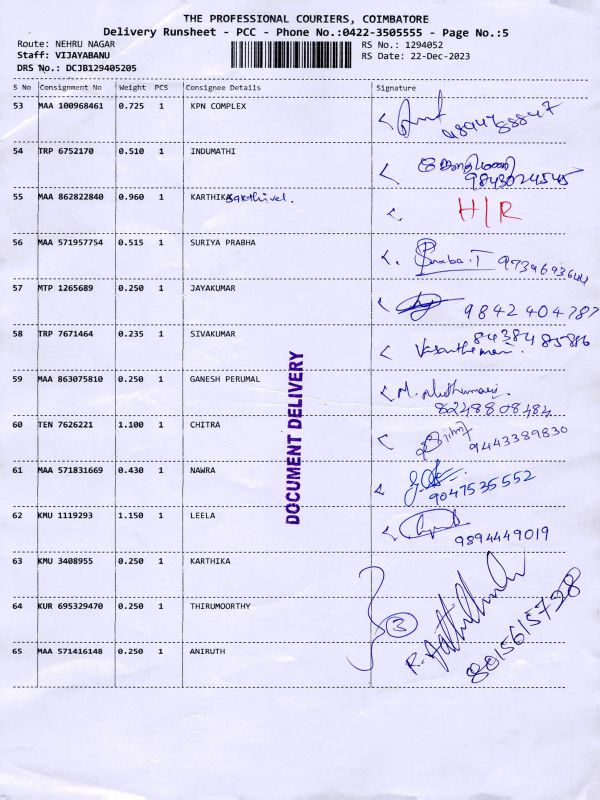 THE PROFESSIONAL COURIERS, COIMBATORE
Delivery Runsheet - PCC - Phone No.:0422-3505555 - Page No.:5
Route: NEHRU NAGAR RS No.: 1294052
Staff: VIJAYABANU RS Date: 22-Dec-2023
DRS No.: DCJB129405205
S No Consignment No Weight PCS Consignee Details Signature
53 MAA 100968461 0.725 1 KPN COMPLEX
54 TRP 6752170 0.510 1 INDUMATHI
9843024545
55 MAA 862822840 0.960 1 KARTHIKA Sakthivel. H/R
56 MAA 571957754 0.515 1 SURIYA PRABHA
Praba.T 9739693644
57 MTP 1265689 0.250 1 JAYAKUMAR
9842404787
58 TRP 7671464 0.235 1 SIVAKUMAR
59 MAA 863075810 0.250 1 GANESH PERUMAL
8248808484
60 TEN 7626221 1.100 1 CHITRA
9443389830
61 MAA 571831669 0.430 1 NAWRA
9047535552
62 KMU 1119293 1.150 1 LEELA
9894449019
63 KMU 3408955 0.250 1 KARTHIKA
64 KUR 695329470 0.250 1 THIRUMOORTHY
3
65 MAA 571416148 0.250 1 ANIRUTH
8015615728
DOCUMENT DELIVERY